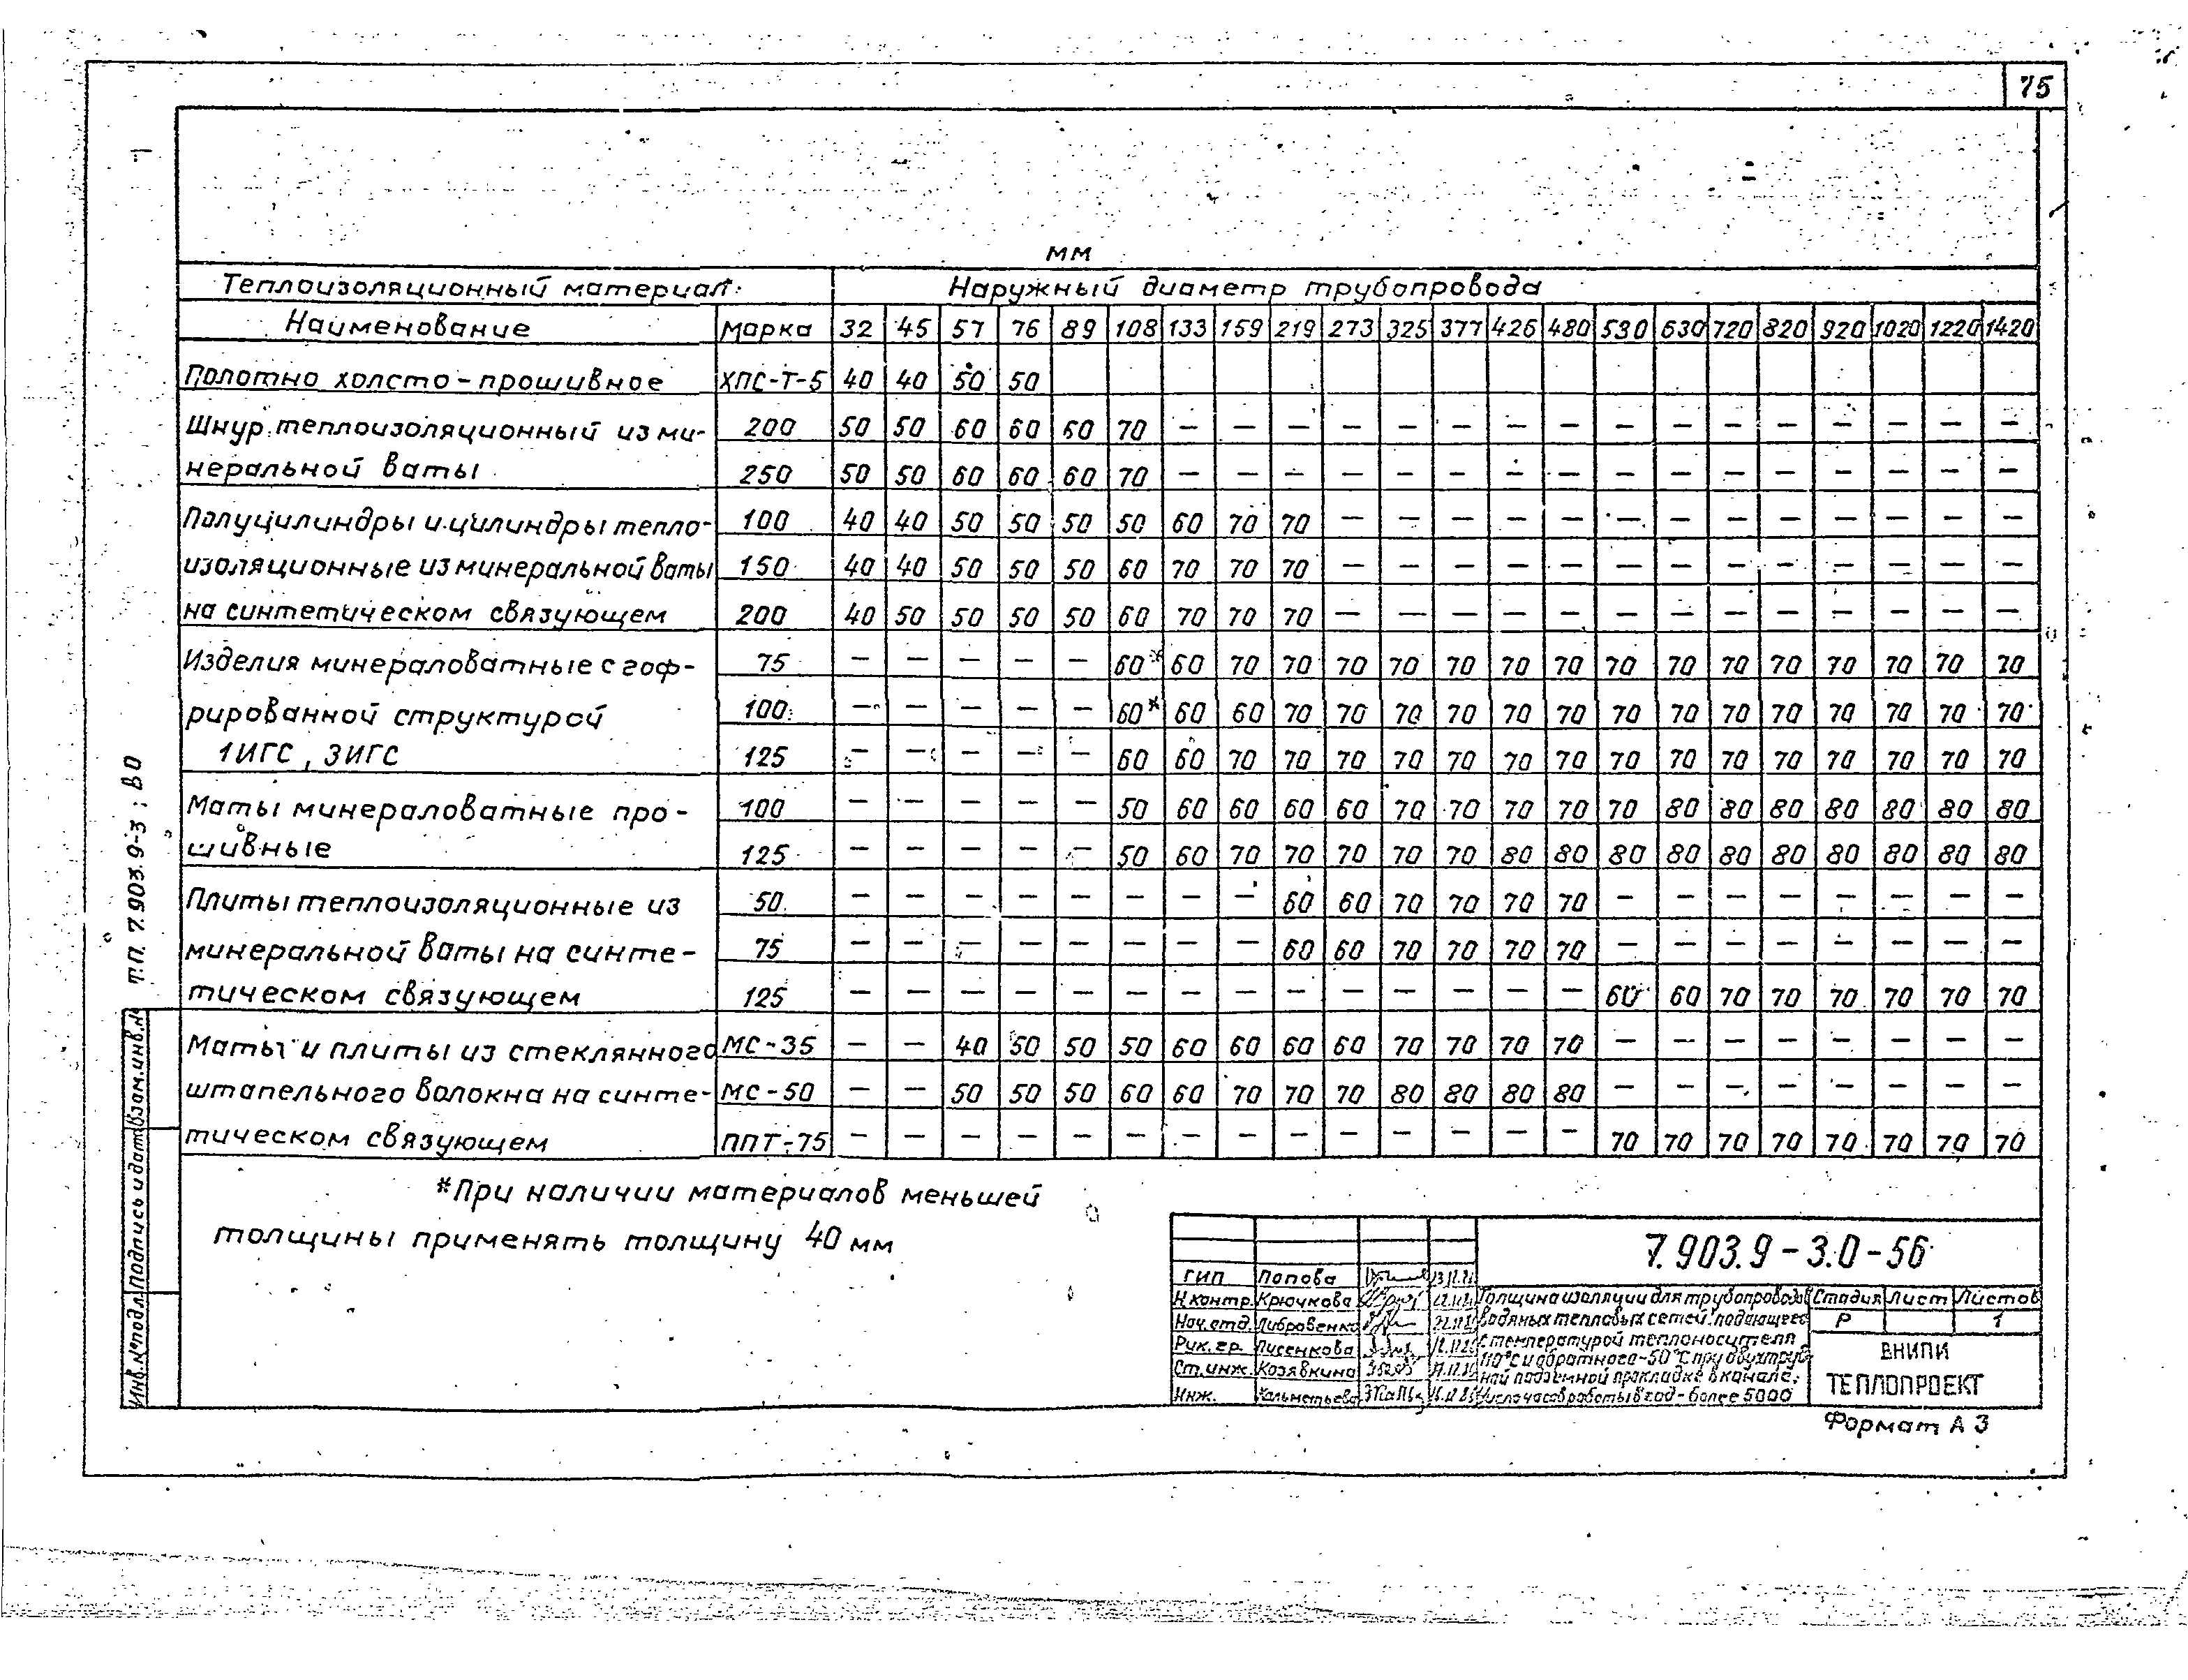 75
мм
Теплоизоляционный материал Наружный диаметр трубопровода
Наименование Марка 32 45 57 76 89 108 133 159 219 273 325 377 426 480 530 630 720 820 920 1020 1220 1420
Полотно холсто-прошивное ХПС-Т-5 40 40 50 50
Шнур теплоизоляционный из ми- 200 50 50 60 60 60 70 — — — — — — — — — — — — — — — —
неральной ваты 250 50 50 60 60 60 70 — — — — — — — — — — — — — — — —
Полуцилиндры и цилиндры тепло- 100 40 40 50 50 50 50 60 70 70 — — — — — — — — — — — — —
изоляционные из минеральной ваты 150 40 40 50 50 50 60 70 70 70 — — — — — — — — — — — — —
на синтетическом связующем 200 40 50 50 50 50 60 70 70 70 — — — — — — — — — — — — —
Изделия минераловатные с гоф- 75 — — — — — 60* 60 70 70 70 70 70 70 70 70 70 70 70 70 70 70 70
рированной структурой 100 — — — — — 60* 60 60 70 70 70 70 70 70 70 70 70 70 70 70 70 70
1ИГС, 3ИГС 125 — — — — — 60 60 70 70 70 70 70 70 70 70 70 70 70 70 70 70 70
Маты минераловатные про- 100 — — — — — 50 60 60 60 60 70 70 70 70 70 80 80 80 80 80 80 80
шивные 125 — — — — — 50 60 70 70 70 70 70 80 80 80 80 80 80 80 80 80 80
Плиты теплоизоляционные из 50 — — — — — — — — 60 60 70 70 70 70 — — — — — — — —
минеральной ваты на синте- 75 — — — — — — — — 60 60 70 70 70 70 — — — — — — — —
тическом связующем 125 — — — — — — — — — — — — — — 60 60 70 70 70 70 70 70
Маты и плиты из стеклянного МС-35 — — 40 50 50 50 60 60 60 60 70 70 70 70 — — — — — — — —
штапельного волокна на синте- МС-50 — — 50 50 50 60 60 70 70 70 80 80 80 80 — — — — — — — —
тическом связующем ППТ-75 — — — — — — — — — — — — — — 70 70 70 70 70 70 70 70
*При наличии материалов меньшей
толщины применять толщину 40 мм
Т.П. 7.903.9-3; В0
Взам.инв.№
Подпись и дата
Инв.№подл.
7.903.9-3.0-56
ГИП Попова
Н.контр. Крючкова
Нач.отд.
Рук.гр. Лисенкова
Ст.инж. Козявкина
Инж.
Толщина изоляции для трубопроводов
водяных тепловых сетей: подающего
с температурой теплоносителя
110°С и обратного-50°С при двухтруб-
ной подземной прокладке в канале;
число часов работы в год - более 5000
Стадия Лист Листов
Р 1
ВНИПИ
ТЕПЛОПРОЕКТ
Формат А3